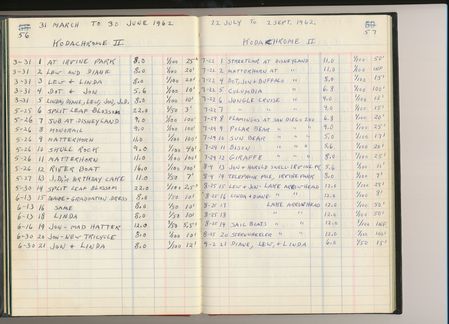 31 MARCH TO 30 JUNE 1962
56
KODACHROME II
3-31 1 AT IRVINE PARK 8.0 1/100 25'
3-31 2 LEW AND DIANE 8.0 1/100 20'
3-31 3 LEW + LINDA 8.0 1/100 20'
3-31 4 DOT + JON 5.6 1/100 10'
3-31 5 LINDA, DIANE, LEW, JON, 8.0 1/100 10'
5-25 6 SPLIT LEAF BLOSSOM 22.0 1/50 3'
5-26 7 SUB AT DISNEYLAND 9.0 1/100 100'
5-26 8 MONORAIL 9.0 1/100 100'
5-26 9 MATTERHORN 16.0 1/100 100'
5-26 10 SKULL ROCK 9.0 1/100 40'
5-26 11 MATTERHORN 11.0 1/100 100'
5-26 12 RIVER BOAT 16.0 1/100 100'
5-27 13 BIRTHDAY CAKE 11.0 1/50 7'
5-30 14 SPLIT LEAF BLOSSOM 22.0 1/100 2.5'
6-13 15 GRADUATION DRESS 8.0 1/50 10'
6-13 16 SAME 8.0 1/50 10'
6-13 18 LINDA 8.0 1/50 10'
6-16 19 JON - MAD HATTER 12.0 1/50 5.5'
6-30 20 JON - NEW TRICYCLE 8.0 1/100 12'
6-30 21 JON + LINDA 8.0 1/100 12'
22 JULY TO 2 SEPT. 1962
57
KODACHROME II
7-22 1 STREETCAR AT DISNEYLAND 11.0 1/100 50'
7-22 2 MATTERHORN AT " 11.0 1/100 INF
7-22 4 DOT, JON + BUFFALO " 8.0 1/100 15'
7-22 5 COLUMBIA " 6.8 1/100 100'
7-22 6 JUNGLE CRUISE " 9.0 1/100 12'
7-22 7 " " 9.0 1/100 15'
7-29 8 FLAMINGOS AT SAN DIEGO ZOO 6.8 1/100 20'
7-29 9 POLAR BEAR " " " 9.0 1/100 25'
7-29 10 SUN BEAR " " " 9.0 1/100 17'
7-29 11 BISON " " " 5.6 1/100 20'
7-29 12 GIRAFFE " " " 8.0 1/100 25'
8-4 13 JON + HAROLD SNELL - IRVINE PK 5.6 1/100 11'
8-4 14 TELEPHONE POLE, IRVINE PARK 8.0 1/100 7'
8-25 15 LEW + JON - LAKE ARROWHEAD 12.0 1/100 25'
8-25 16 LINDA + DIANE " " 12.0 1/100 8'
8-25 17 LAKE ARROWHEAD 12.0 1/100 50'
8-25 18 " " 12.0 1/100 50'
8-25 19 SAIL BOATS " " 12.0 1/100 INF
8-25 20 STERNWHEELER " " 12.0 1/100 100'
9-2 21 DIANE, LEW, + LINDA 6.0 1/50 15'